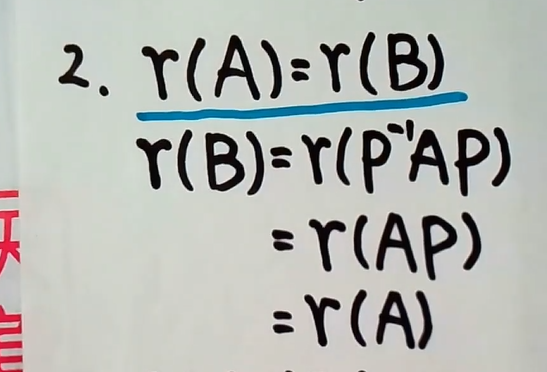 2. r(A)=r(B)
r(B)=r(P⁻¹AP)
=r(AP)
=r(A)